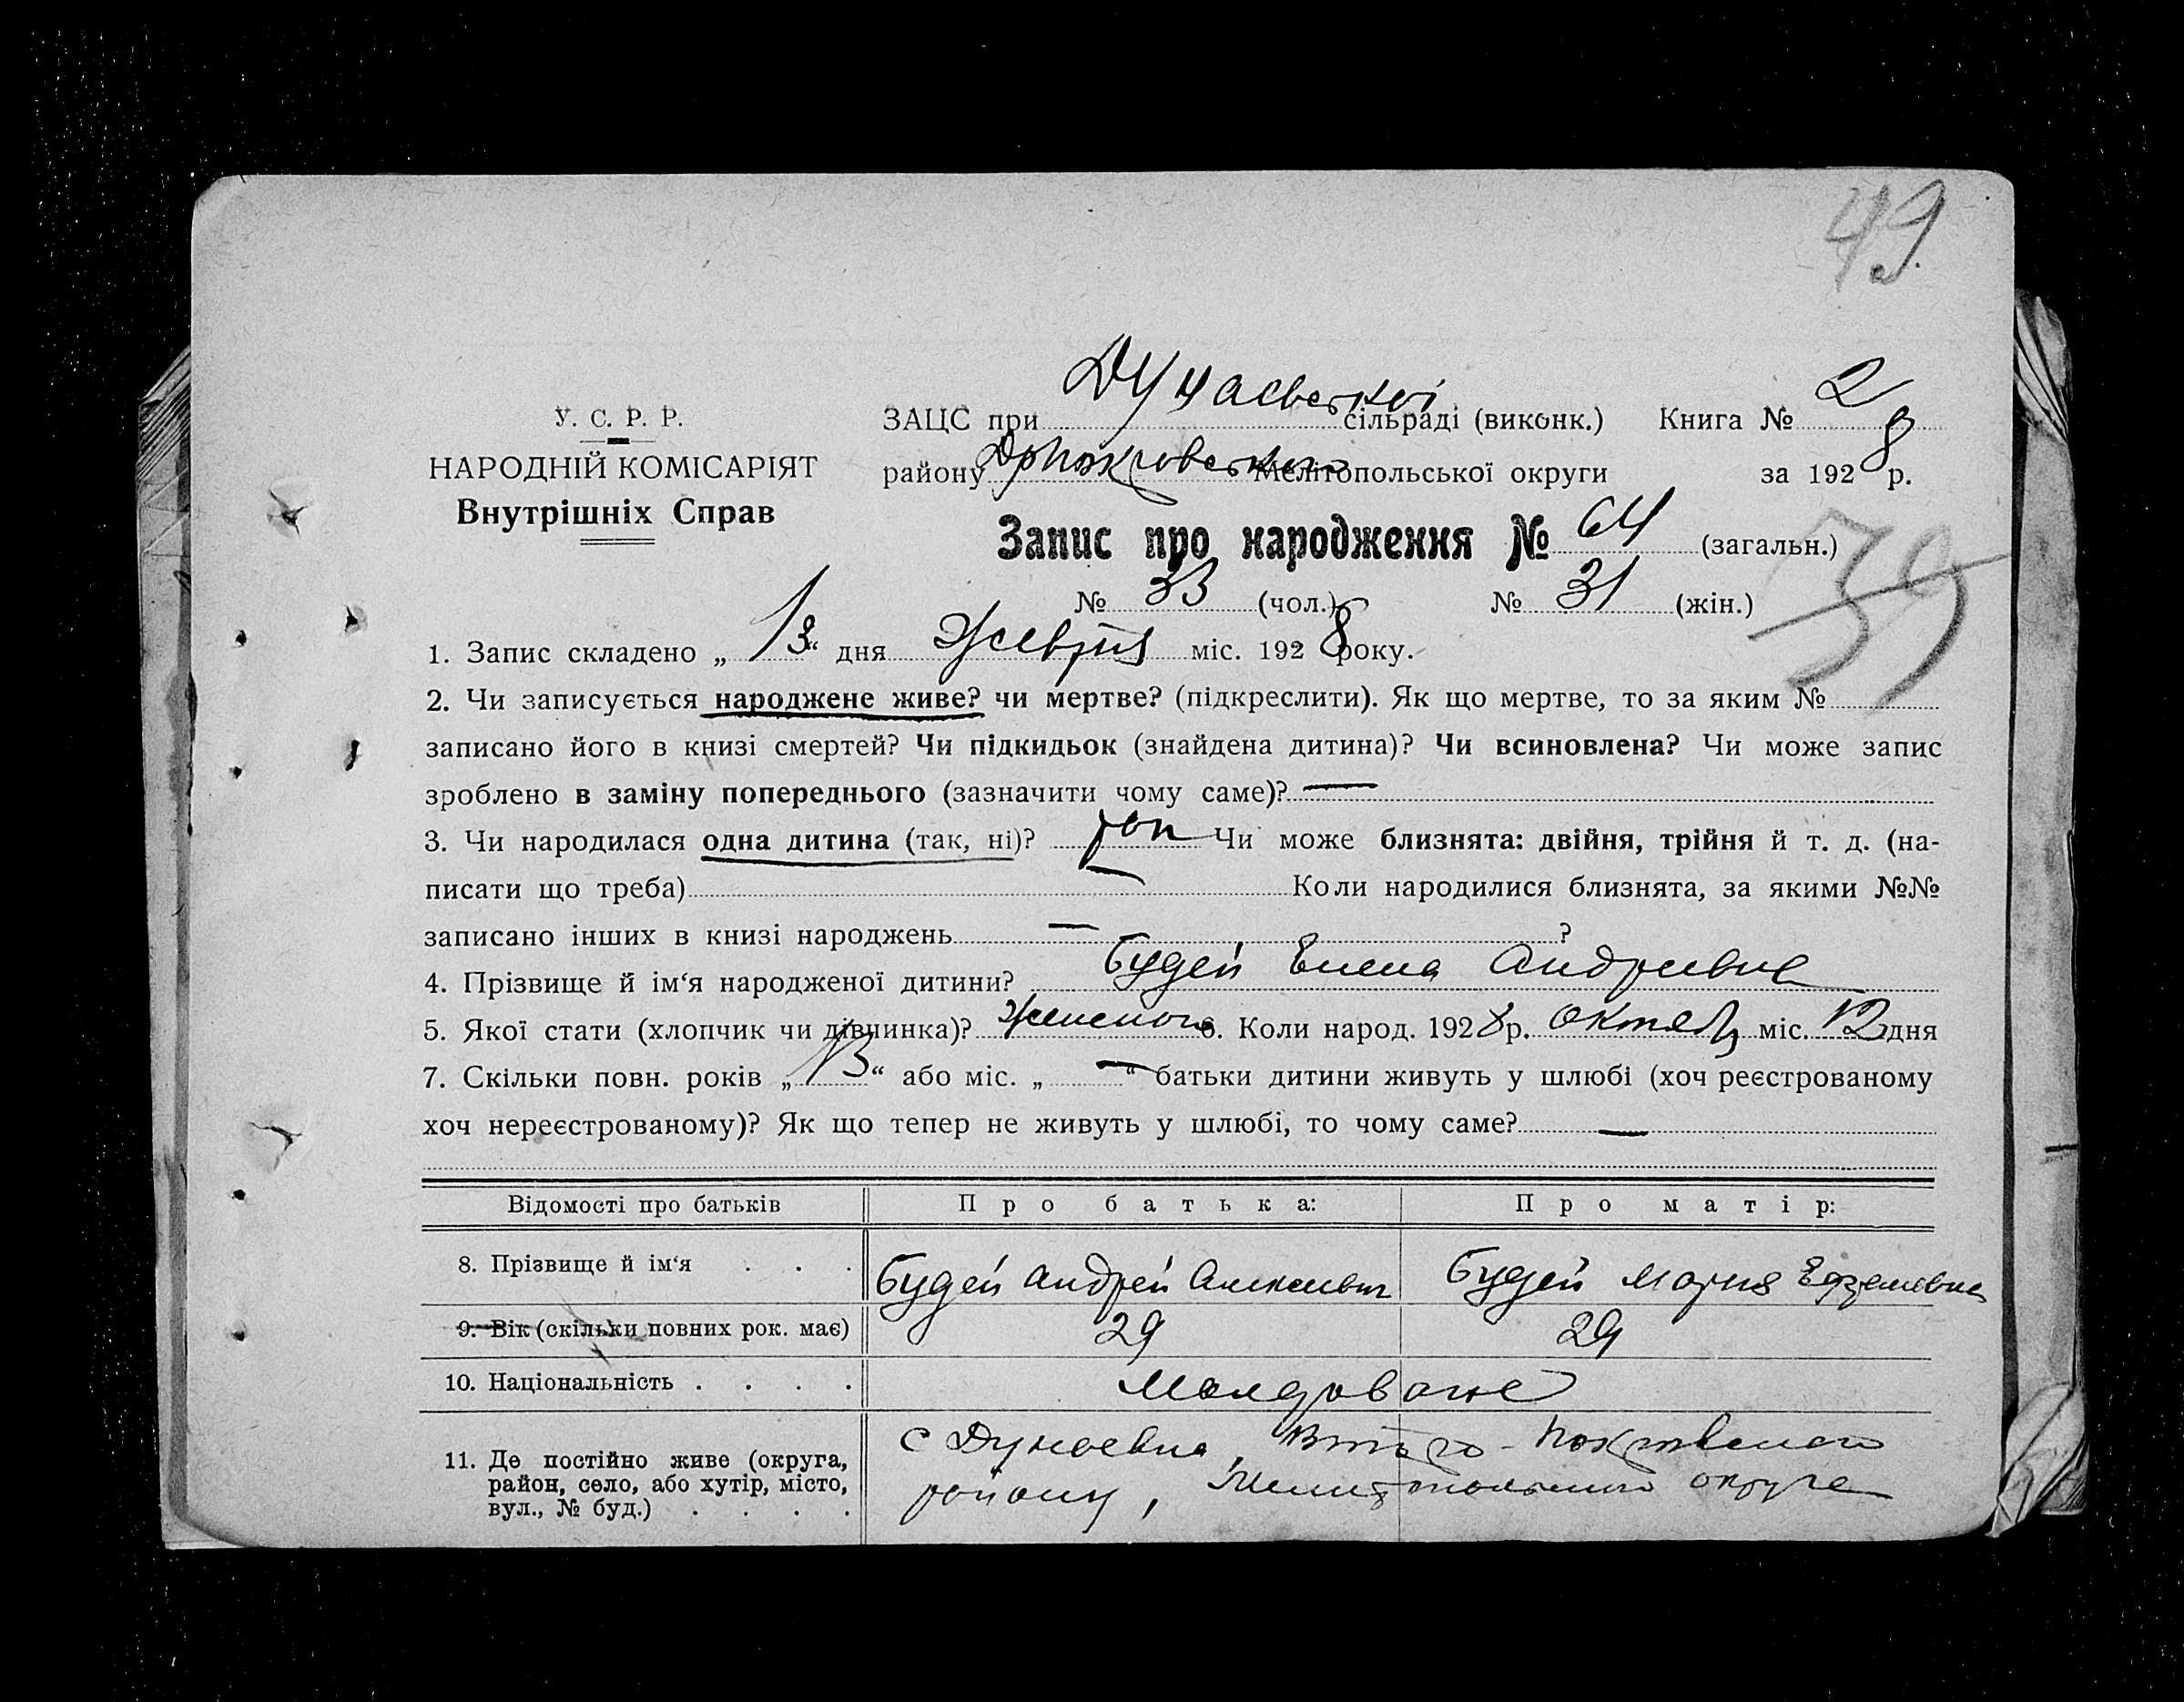 49
У. С. Р. Р.
НАРОДНІЙ КОМІСАРІЯТ
Внутрішніх Справ
ЗАЦС при Дунаевськоі сільраді (виконк.) Книга № 2
району Мелітопольської округи за 1928 р.
Запис про народження № 64 (загальн.)
№ 33 (чол.) № 31 (жін.)
39
1. Запис складено „13“ дня Жовтня міс. 1928 року.
2. Чи записується народжене живе? чи мертве? (підкреслити). Як що мертве, то за яким №
записано його в книзі смертей? Чи підкидьок (знайдена дитина)? Чи всиновлена? Чи може запис
зроблено в заміну попереднього (зазначити чому саме)? —
3. Чи народилася одна дитина (так, ні)? Чи може близнята: двійня, трійня й т. д. (на-
писати що треба) Коли народилися близнята, за якими №№
записано інших в книзі народжень — ?
4. Прізвище й ім‘я народженої дитини? Будей Елена Андреевна
5. Якої стати (хлопчик чи дівчинка)? 6. Коли народ. 1928 р. октяб міс. 12 дня
7. Скільки повн. років „13“ або міс. „—“ батьки дитини живуть у шлюбі (хоч реєстрованому
хоч нереєстрованому)? Як що тепер не живуть у шлюбі, то чому саме? —
Відомості про батьків Про батька: Про матір:
8. Прізвище й ім‘я . . . Будей Андрей Алексеевич Будей Мария Ефремовна
9. Вік (скільки повних рок. має) 29 29
10. Національність . . . . Молдоване
11. Де постійно живе (округа, с Дунаевка, Второ-Покровского
район, село, або хутір, місто, району, Мелитопольского округа
вул., № буд.) . . . .